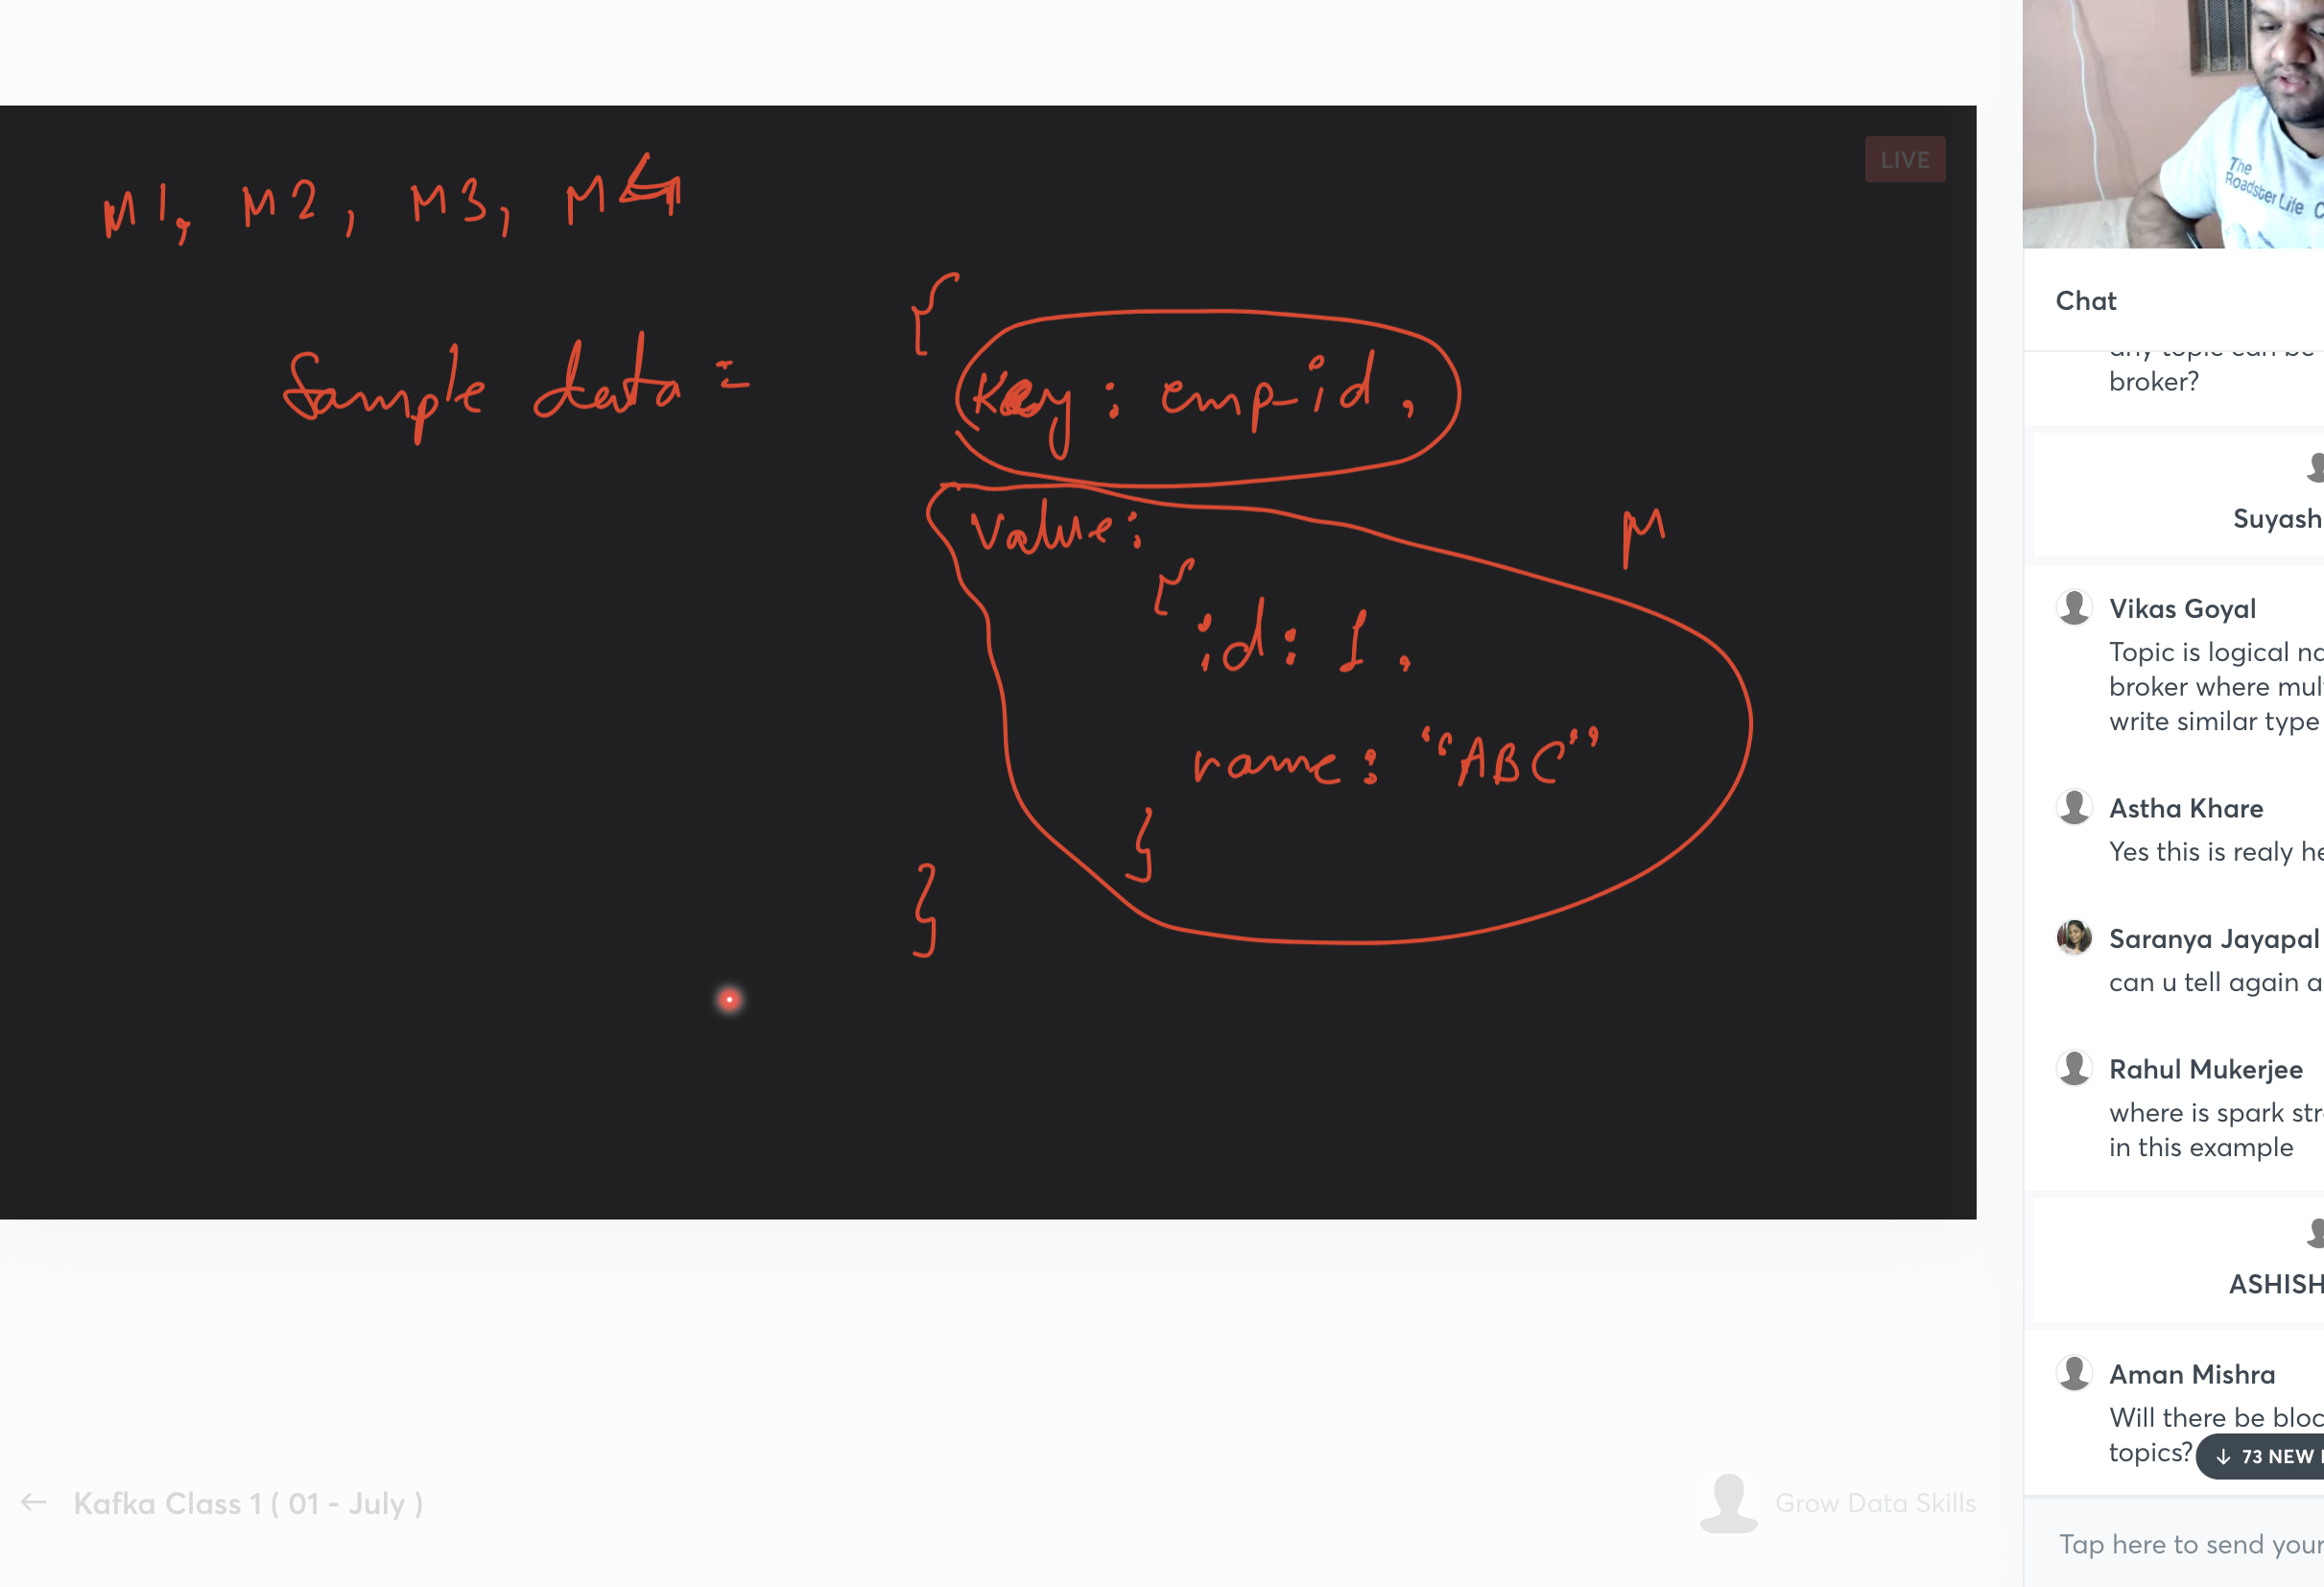 M1, M2, M3, M4
LIVE
Sample data =
{
Key: emp-id,
Value:
M
{
id: 1,
name: "ABC"
}
}
The
Roadster Life C
Chat
broker?
Suyash
Vikas Goyal
Topic is logical na
broker where mul
write similar type
Astha Khare
Yes this is realy he
Saranya Jayapal
can u tell again a
Rahul Mukerjee
where is spark stre
in this example
ASHISH
Aman Mishra
Will there be bloc
topics?
↓ 73 NEW
Tap here to send your
← Kafka Class 1 ( 01 - July )
Grow Data Skills